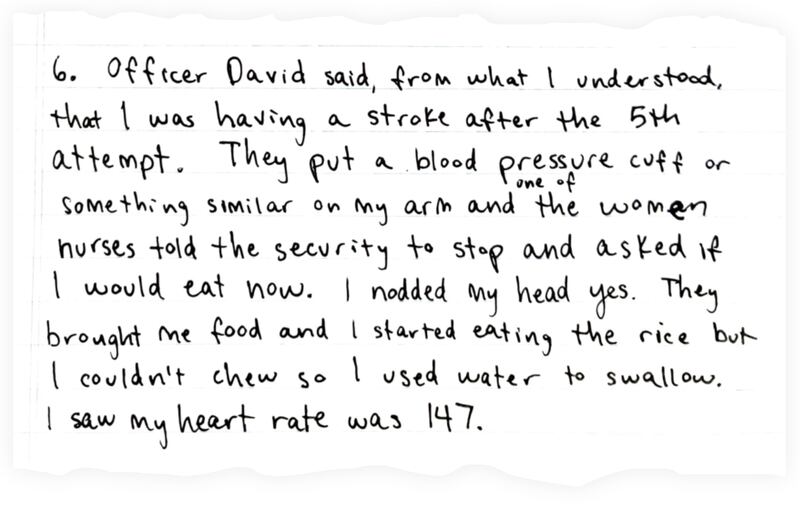 6. Officer David said, from what I understood,
that I was having a stroke after the 5th
attempt. They put a blood pressure cuff or
something similar on my arm and one of the women
nurses told the security to stop and asked if
I would eat now. I nodded my head yes. They
brought me food and I started eating the rice but
I couldn't chew so I used water to swallow.
I saw my heart rate was 147.